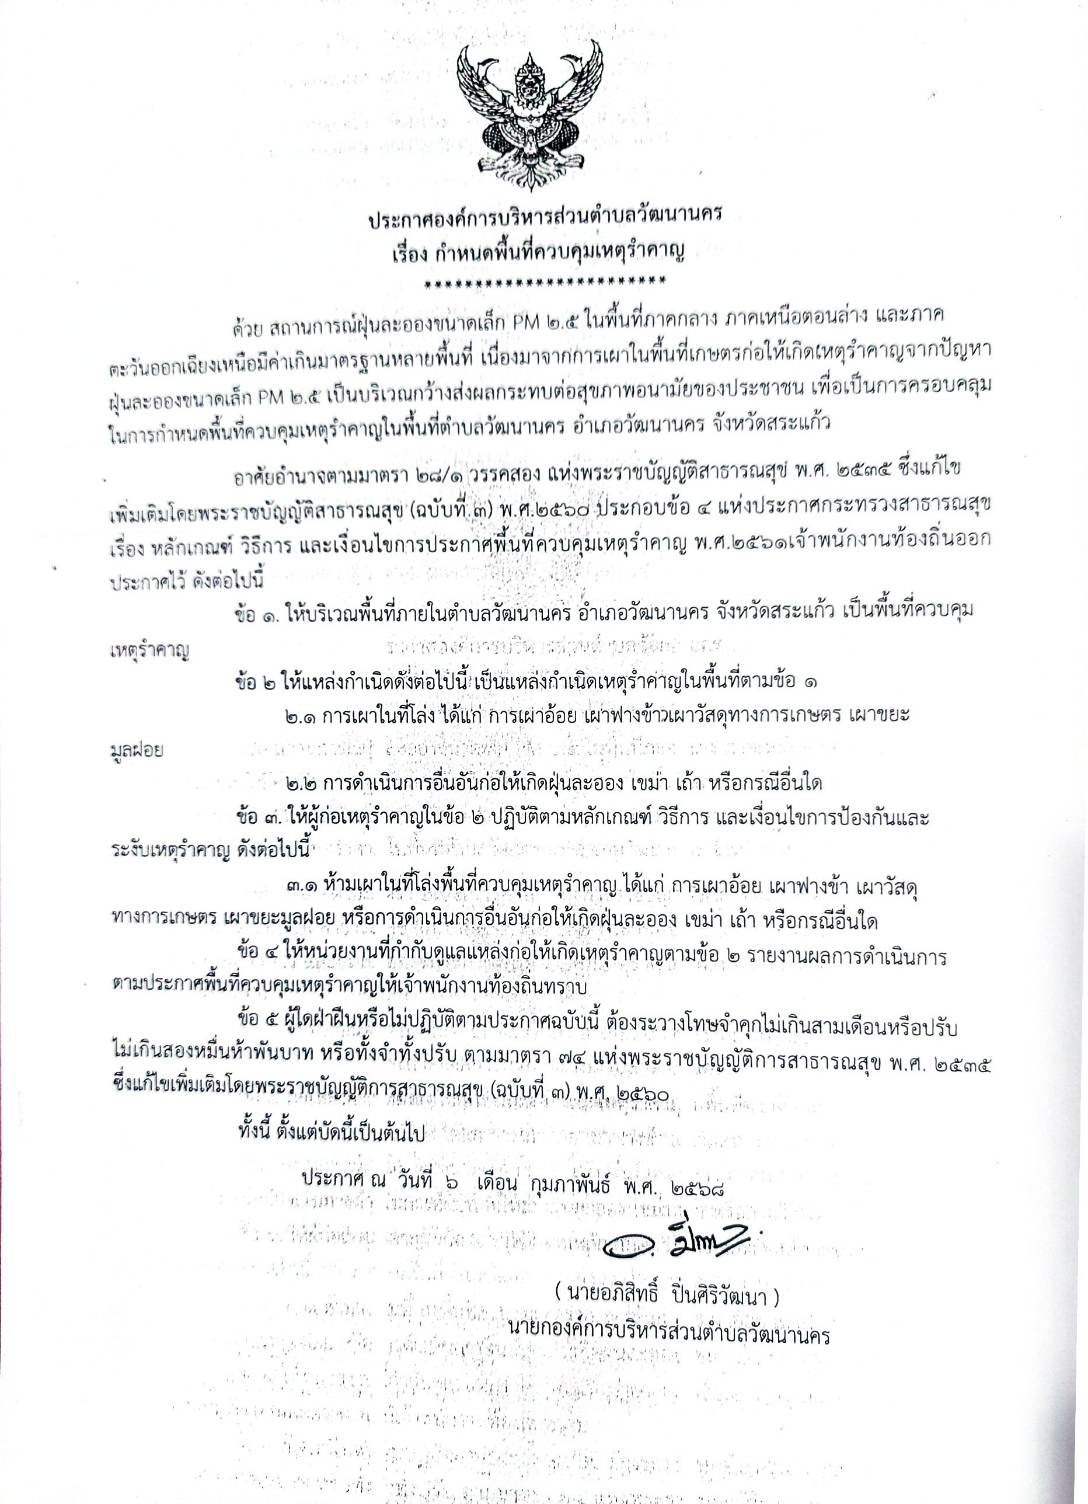 ประกาศองค์การบริหารส่วนตำบลวัฒนานคร
เรื่อง กำหนดพื้นที่ควบคุมเหตุรำคาญ
************************
ด้วย สถานการณ์ฝุ่นละอองขนาดเล็ก PM ๒.๕ ในพื้นที่ภาคกลาง ภาคเหนือตอนล่าง และภาค
ตะวันออกเฉียงเหนือมีค่าเกินมาตรฐานหลายพื้นที่ เนื่องมาจากการเผาในพื้นที่เกษตรก่อให้เกิดเหตุรำคาญจากปัญหา
ฝุ่นละอองขนาดเล็ก PM ๒.๕ เป็นบริเวณกว้างส่งผลกระทบต่อสุขภาพอนามัยของประชาชน เพื่อเป็นการครอบคลุม
ในการกำหนดพื้นที่ควบคุมเหตุรำคาญในพื้นที่ตำบลวัฒนานคร อำเภอวัฒนานคร จังหวัดสระแก้ว
อาศัยอำนาจตามมาตรา ๒๘/๑ วรรคสอง แห่งพระราชบัญญัติสาธารณสุข พ.ศ. ๒๕๓๕ ซึ่งแก้ไข
เพิ่มเติมโดยพระราชบัญญัติสาธารณสุข (ฉบับที่ ๓) พ.ศ.๒๕๖๐ ประกอบข้อ ๔ แห่งประกาศกระทรวงสาธารณสุข
เรื่อง หลักเกณฑ์ วิธีการ และเงื่อนไขการประกาศพื้นที่ควบคุมเหตุรำคาญ พ.ศ.๒๕๖๑เจ้าพนักงานท้องถิ่นออก
ประกาศไว้ ดังต่อไปนี้
ข้อ ๑. ให้บริเวณพื้นที่ภายในตำบลวัฒนานคร อำเภอวัฒนานคร จังหวัดสระแก้ว เป็นพื้นที่ควบคุม
เหตุรำคาญ
ข้อ ๒ ให้แหล่งกำเนิดดังต่อไปนี้ เป็นแหล่งกำเนิดเหตุรำคาญในพื้นที่ตามข้อ ๑
๒.๑ การเผาในที่โล่ง ได้แก่ การเผาอ้อย เผาฟางข้าวเผาวัสดุทางการเกษตร เผาขยะ
มูลฝอย
๒.๒ การดำเนินการอื่นอันก่อให้เกิดฝุ่นละออง เขม่า เถ้า หรือกรณีอื่นใด
ข้อ ๓. ให้ผู้ก่อเหตุรำคาญในข้อ ๒ ปฏิบัติตามหลักเกณฑ์ วิธีการ และเงื่อนไขการป้องกันและ
ระงับเหตุรำคาญ ดังต่อไปนี้
๓.๑ ห้ามเผาในที่โล่งพื้นที่ควบคุมเหตุรำคาญ ได้แก่ การเผาอ้อย เผาฟางข้า เผาวัสดุ
ทางการเกษตร เผาขยะมูลฝอย หรือการดำเนินการอื่นอันก่อให้เกิดฝุ่นละออง เขม่า เถ้า หรือกรณีอื่นใด
ข้อ ๔ ให้หน่วยงานที่กำกับดูแลแหล่งก่อให้เกิดเหตุรำคาญตามข้อ ๒ รายงานผลการดำเนินการ
ตามประกาศพื้นที่ควบคุมเหตุรำคาญให้เจ้าพนักงานท้องถิ่นทราบ
ข้อ ๕ ผู้ใดฝ่าฝืนหรือไม่ปฏิบัติตามประกาศฉบับนี้ ต้องระวางโทษจำคุกไม่เกินสามเดือนหรือปรับ
ไม่เกินสองหมื่นห้าพันบาท หรือทั้งจำทั้งปรับ ตามมาตรา ๗๔ แห่งพระราชบัญญัติการสาธารณสุข พ.ศ. ๒๕๓๕
ซึ่งแก้ไขเพิ่มเติมโดยพระราชบัญญัติการสาธารณสุข (ฉบับที่ ๓) พ.ศ. ๒๕๖๐
ทั้งนี้ ตั้งแต่บัดนี้เป็นต้นไป
ประกาศ ณ วันที่ ๖ เดือน กุมภาพันธ์ พ.ศ. ๒๕๖๘
( นายอภิสิทธิ์ ปิ่นศิริวัฒนา )
นายกองค์การบริหารส่วนตำบลวัฒนานคร